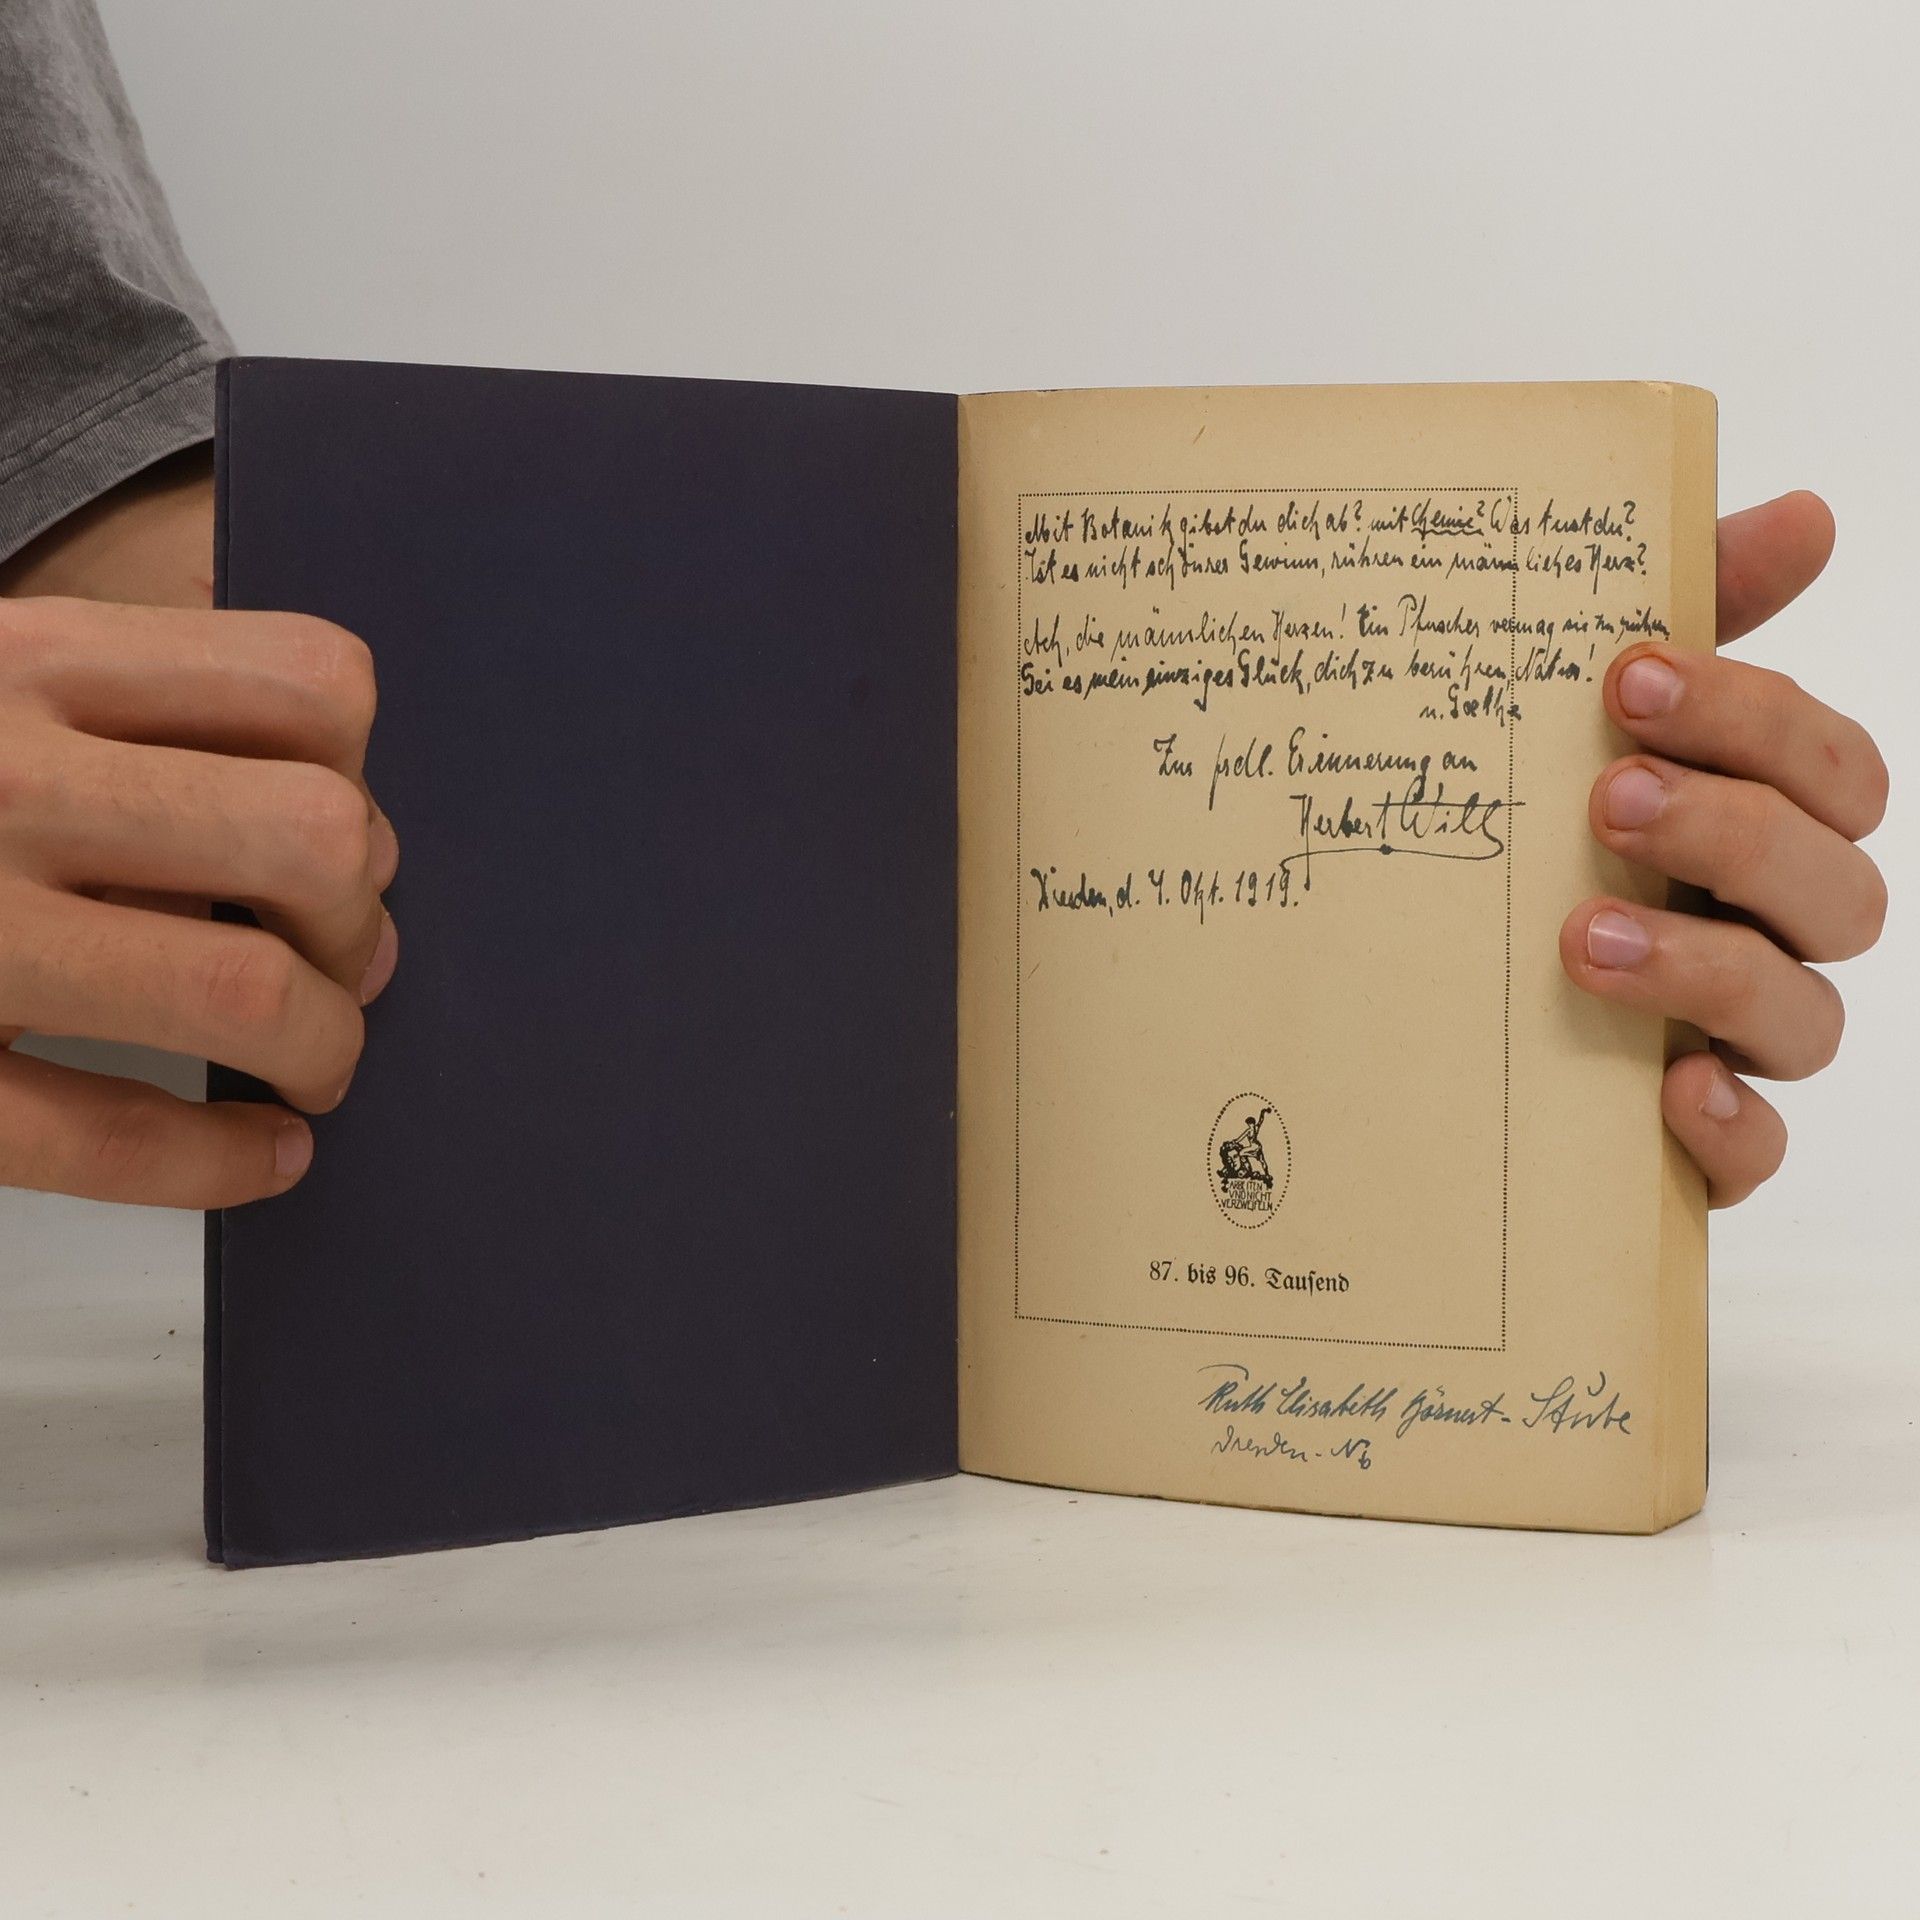 Mit Botanik gibst du dich ab? mit Chemie? Was tust du?
Ist es nicht schönrer Gewinn, rühren ein männliches Herz?
Ach, die männlichen Herzen! Ein Pfuscher vermag sie zu rühren
Sei es mein einziges Glück, dich zu berühren, Natur!
v. Goethe
Zur frdl. Erinnerung an
Herbert Will
Dresden, d. 4. Okt. 1919.
ARBEITEN
VND NICHT
VERZWEIFELN
87. bis 96. Tauſend
Ruth Elisabeth Börnert-Stube
Dresden-N6